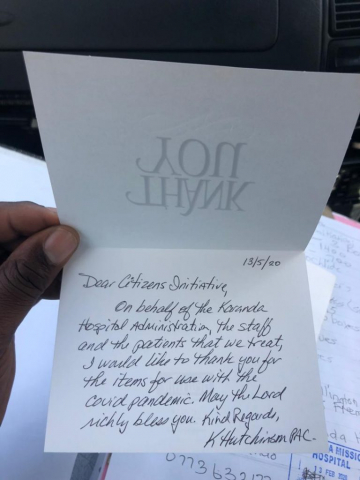 THANK
YOU
13/5/20
Dear Citizens Initiative,
On behalf of the Karanda
Hospital Administration, the staff
and the patients that we treat,
I would like to thank you for
the items for use with the
covid pandemic. May the Lord
richly bless you. Kind Regards,
K Hutchinson PAC.
A MISSIO
HOSPITAL
13 FEB